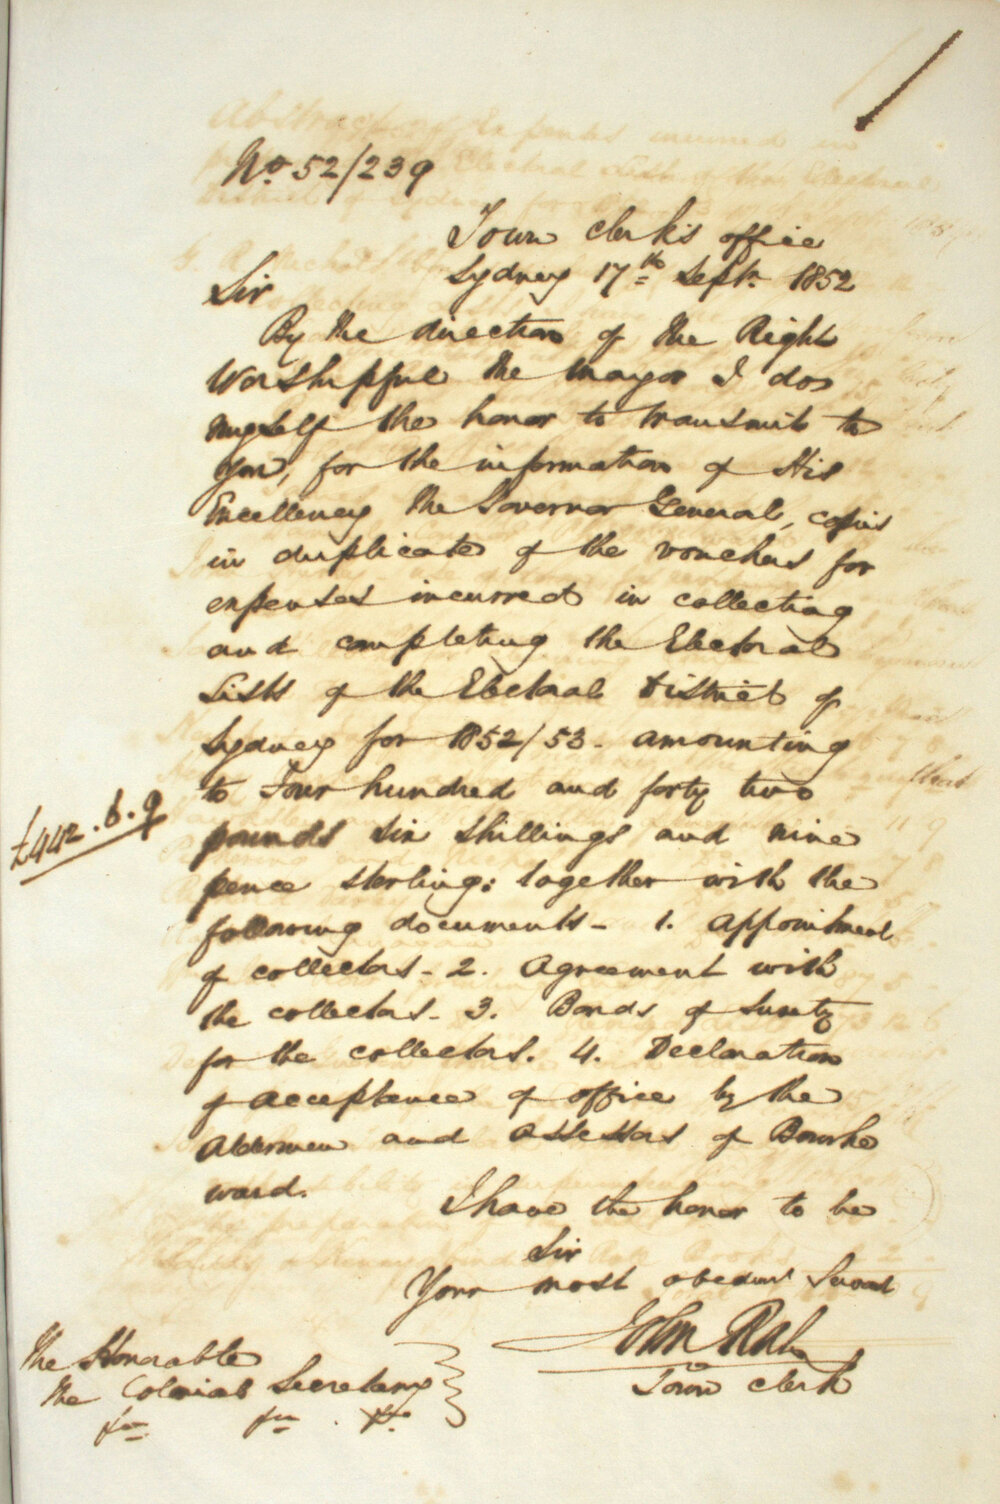 No. 52/239
Town Clerk's office
Sydney 17th Septr. 1852
Sir
By the direction of the Right
Worshipful the Mayor I do
myself the honor to transmit to
you, for the information of His
Excellency the Governor General, copies
in duplicate of the vouchers for
expenses incurred in collecting
and completing the Electoral
Lists of the Electoral District of
Sydney for 1852/53. amounting
to Four hundred and forty two
£442.6.9
pounds six shillings and nine
pence sterling: together with the
following documents - 1. Appointment
of collectors - 2. Agreement with
the collectors - 3. Bonds of Surety
for the collectors. 4. Declaration
of acceptance of office by the
Aldermen and Assessors of Bourke
ward.
I have the honor to be
Sir
Your most obedient Servant
John Rae
Town Clerk
The Honorable
The Colonial Secretary